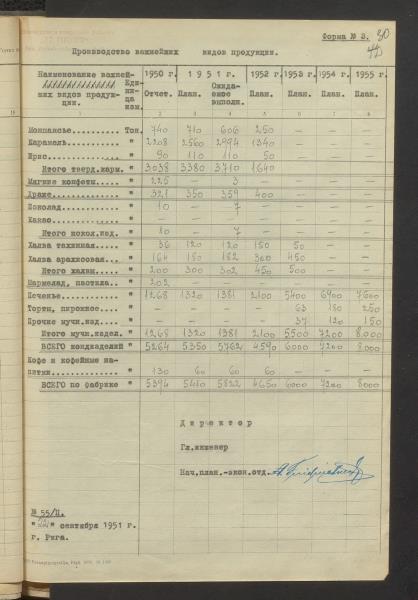 Форма № 3. 30
45
Производство важнейших видов продукции.
Наименование важней- ших видов продук- ции. Еди- ни- ца изм. 1950 г. 1951 г. 1952 г. 1953 г. 1954 г. 1955 г.
Отчет. План. Ожида- емое выполн. План. План. План. План.
1 2 3 4 5 6 7 8
Монпансье Тон. 740 710 606 250 — — —
Карамель " 2208 2560 2994 1340 — — —
Ирис " 90 110 110 50 — — —
Итого тверд.карм. " 3038 3380 3710 1640 — — —
Мягкие конфеты " 225 — 3 — — — —
Драже " 321 350 359 400 — — —
Шоколад " 10 — 7 — — — —
Какао " — — — — — — —
Итого шокол.изд. " 10 — 7 — — — —
Халва тахинная " 36 120 120 150 50 — —
Халва арахисовая " 164 180 182 300 450 — —
Итого халвы " 200 300 302 450 500 — —
Мармелад, пастила " 202 — — — — — —
Печенье " 1268 1320 1381 2100 5400 6900 7600
Торты, пирожное " — — — — 63 180 250
Прочие мучн.изд. " — — — — 37 120 150
Итого мучн.издел. " 1268 1320 1381 2100 5500 7200 8000
ВСЕГО кондизделий " 5264 5350 5762 4590 6000 7200 8000
Кофе и кофейные на-
питки " 130 60 60 60 — — —
ВСЕГО по фабрике " 5394 5410 5822 4650 6000 7200 8000
Директор
Гл.инженер
Нач.план.-экон.отд.
№ 55/П.
" " сентября 1951 г.
г. Рига.